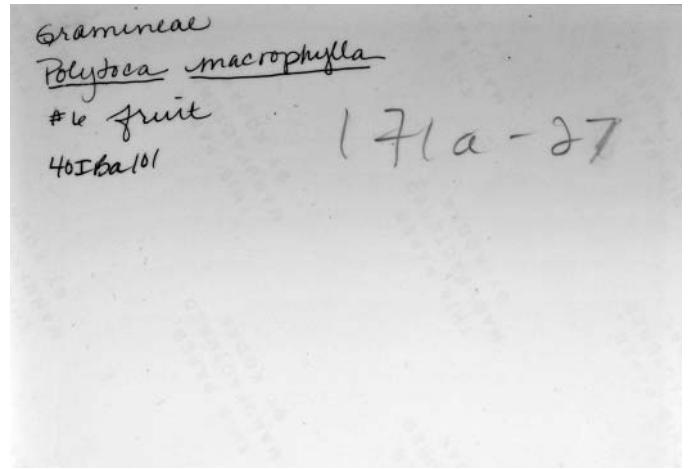 Gramineae
Polytoca macrophylla
#6 fruit
40IBa101
171a-27